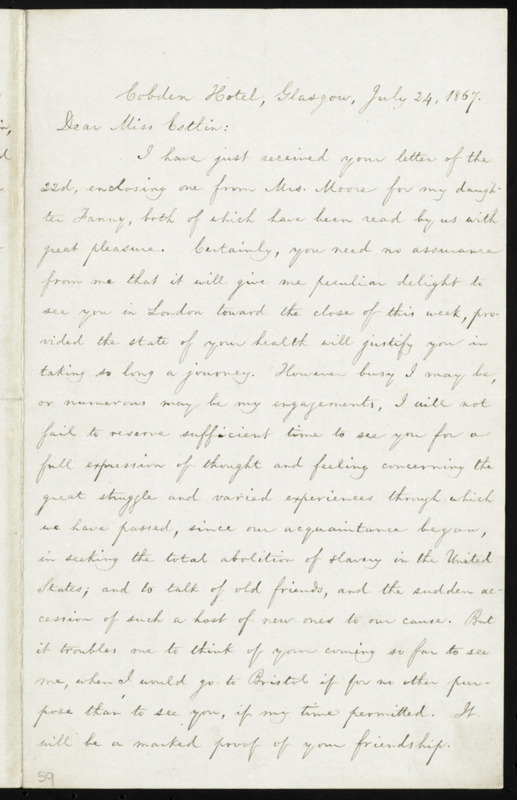 Cobden Hotel, Glasgow, July 24, 1867.
Dear Miss Estlin:
I have just received your letter of the
22d, enclosing one from Mrs. Moore for my daugh-
ter Fanny, both of which have been read by us with
great pleasure. Certainly, you need no assurance
from me that it will give me peculiar delight to
see you in London toward the close of this week, pro-
vided the state of your health will justify you in
taking so long a journey. However busy I may be,
or numerous may be my engagements, I will not
fail to reserve sufficient time to see you for a
full expression of thought and feeling concerning the
great struggle and varied experiences through which
we have passed, since our acquaintance began,
in seeking the total abolition of slavery in the United
States; and to talk of old friends, and the sudden ac-
cession of such a host of new ones to our cause. But
it troubles me to think of your coming so far to see
me, when I would go to Bristol if for no other pur-
pose than to see you, if my time permitted. It
will be a marked proof of your friendship.
59